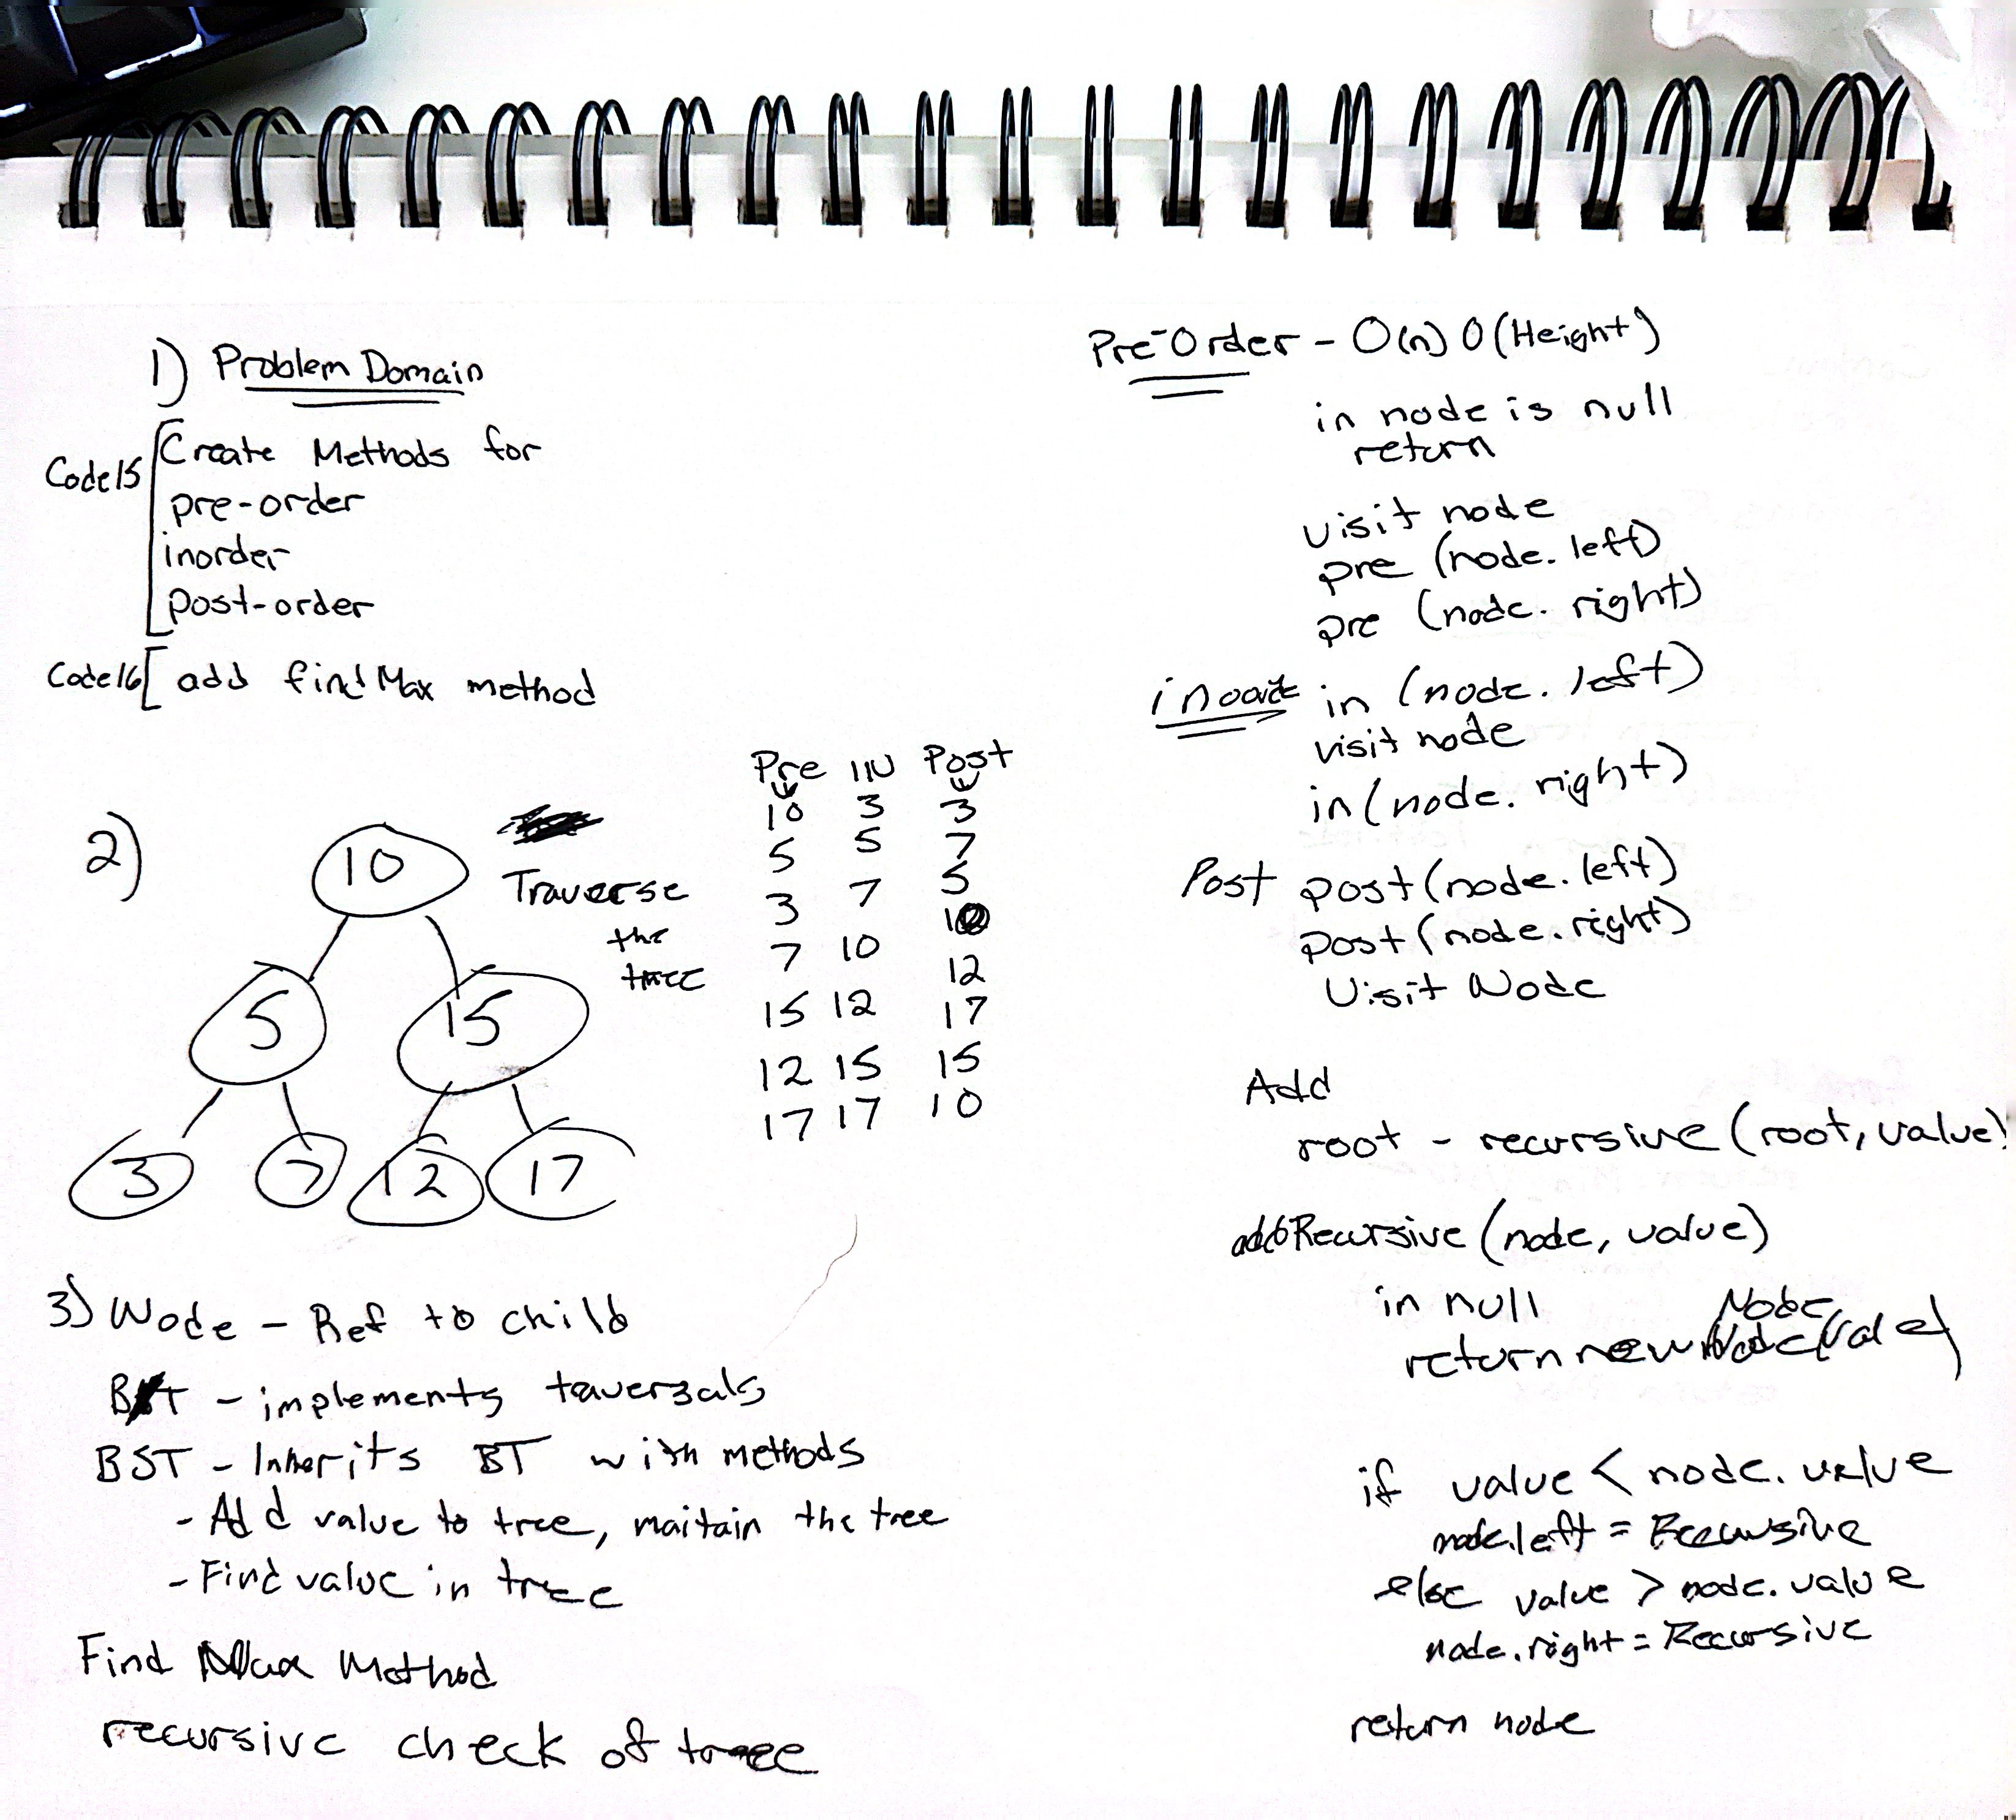 1) Problem Domain
Code15
Create Methods for
pre-order
inorder
post-order
Code16 [ add find Max method
2)
10
5 15
3 7 12 17
Traverse
the
tree
Pre IN Post
10 3 3
5 5 7
3 7 5
7 10
15 12 12
12 15 17
17 17 15
10
3) Node - Ref to child
BT - implements traversals
BST - Inherits BT with methods
- Add value to tree, maitain the tree
- Find value in tree
Find Max Method
recursive check of tree
Pre-Order - O(n) O(Height)
in node is null
return
visit node
pre (node.left)
pre (node.right)
in (node.left)
visit node
in (node.right)
Post post(node.left)
post(node.right)
Visit Node
Add
root - recursive (root, value)
addRecursive (node, value)
in null
Node
return new Node(value)
if value < node.value
node.left = Recursive
else value > node.value
node.right = Recursive
return node